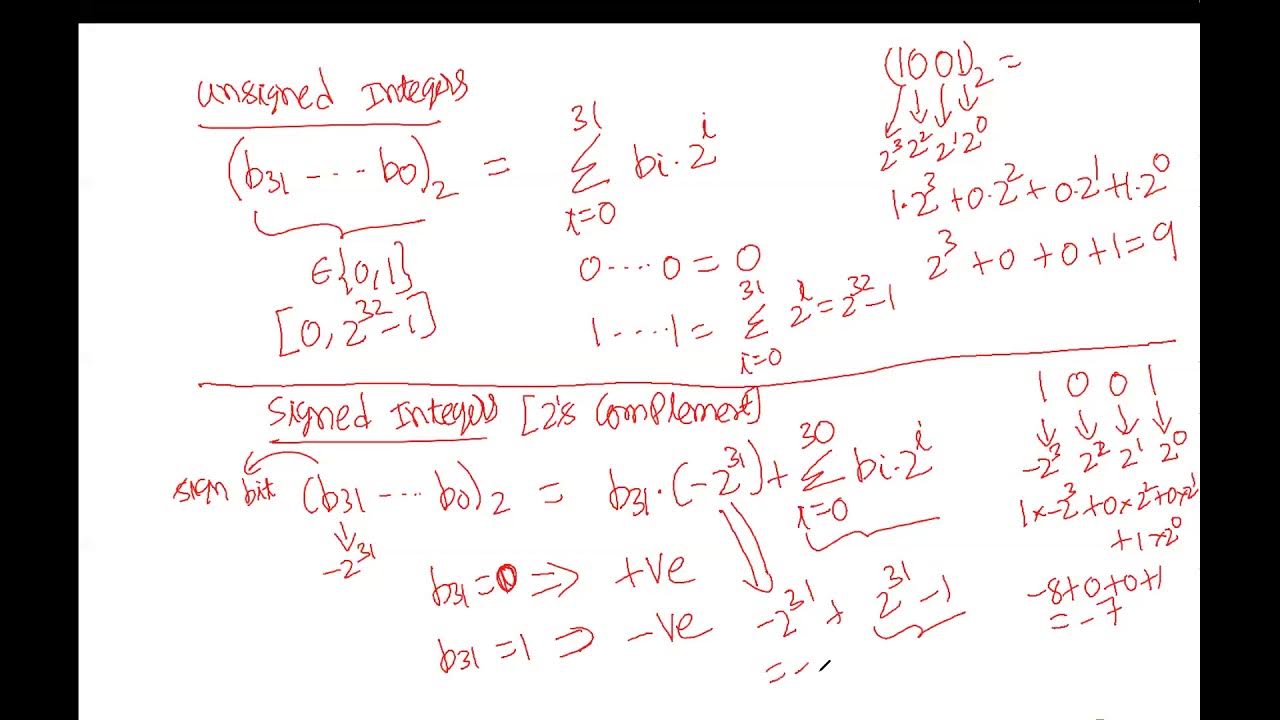 unsigned Integers
(b31 --··· b0)2 = 31 Σ i=0 bi·2^i
∈{0,1}
[0, 2^32-1]
0····0 = 0
1····1 = 31 Σ i=0 2^i = 2^32-1
(1001)2 =
↓ ↓ ↓ ↓
2^3 2^2 2^1 2^0
1·2^3+0·2^2+0·2^1+1·2^0
2^3+0+0+1=9
Signed Integers [2's complement]
sign bit (b31 --··· b0)2 = b31·(-2^31)+ 30 Σ i=0 bi·2^i
↓
-2^31
b31=0 ⇒ +ve
b31=1 ⇒ -ve
-2^31 + 2^31-1
= -
1 0 0 1
↓ ↓ ↓ ↓
-2^3 2^2 2^1 2^0
1×-2^3+0×2^2+0×2^1
+1×2^0
-8+0+0+1
=-7